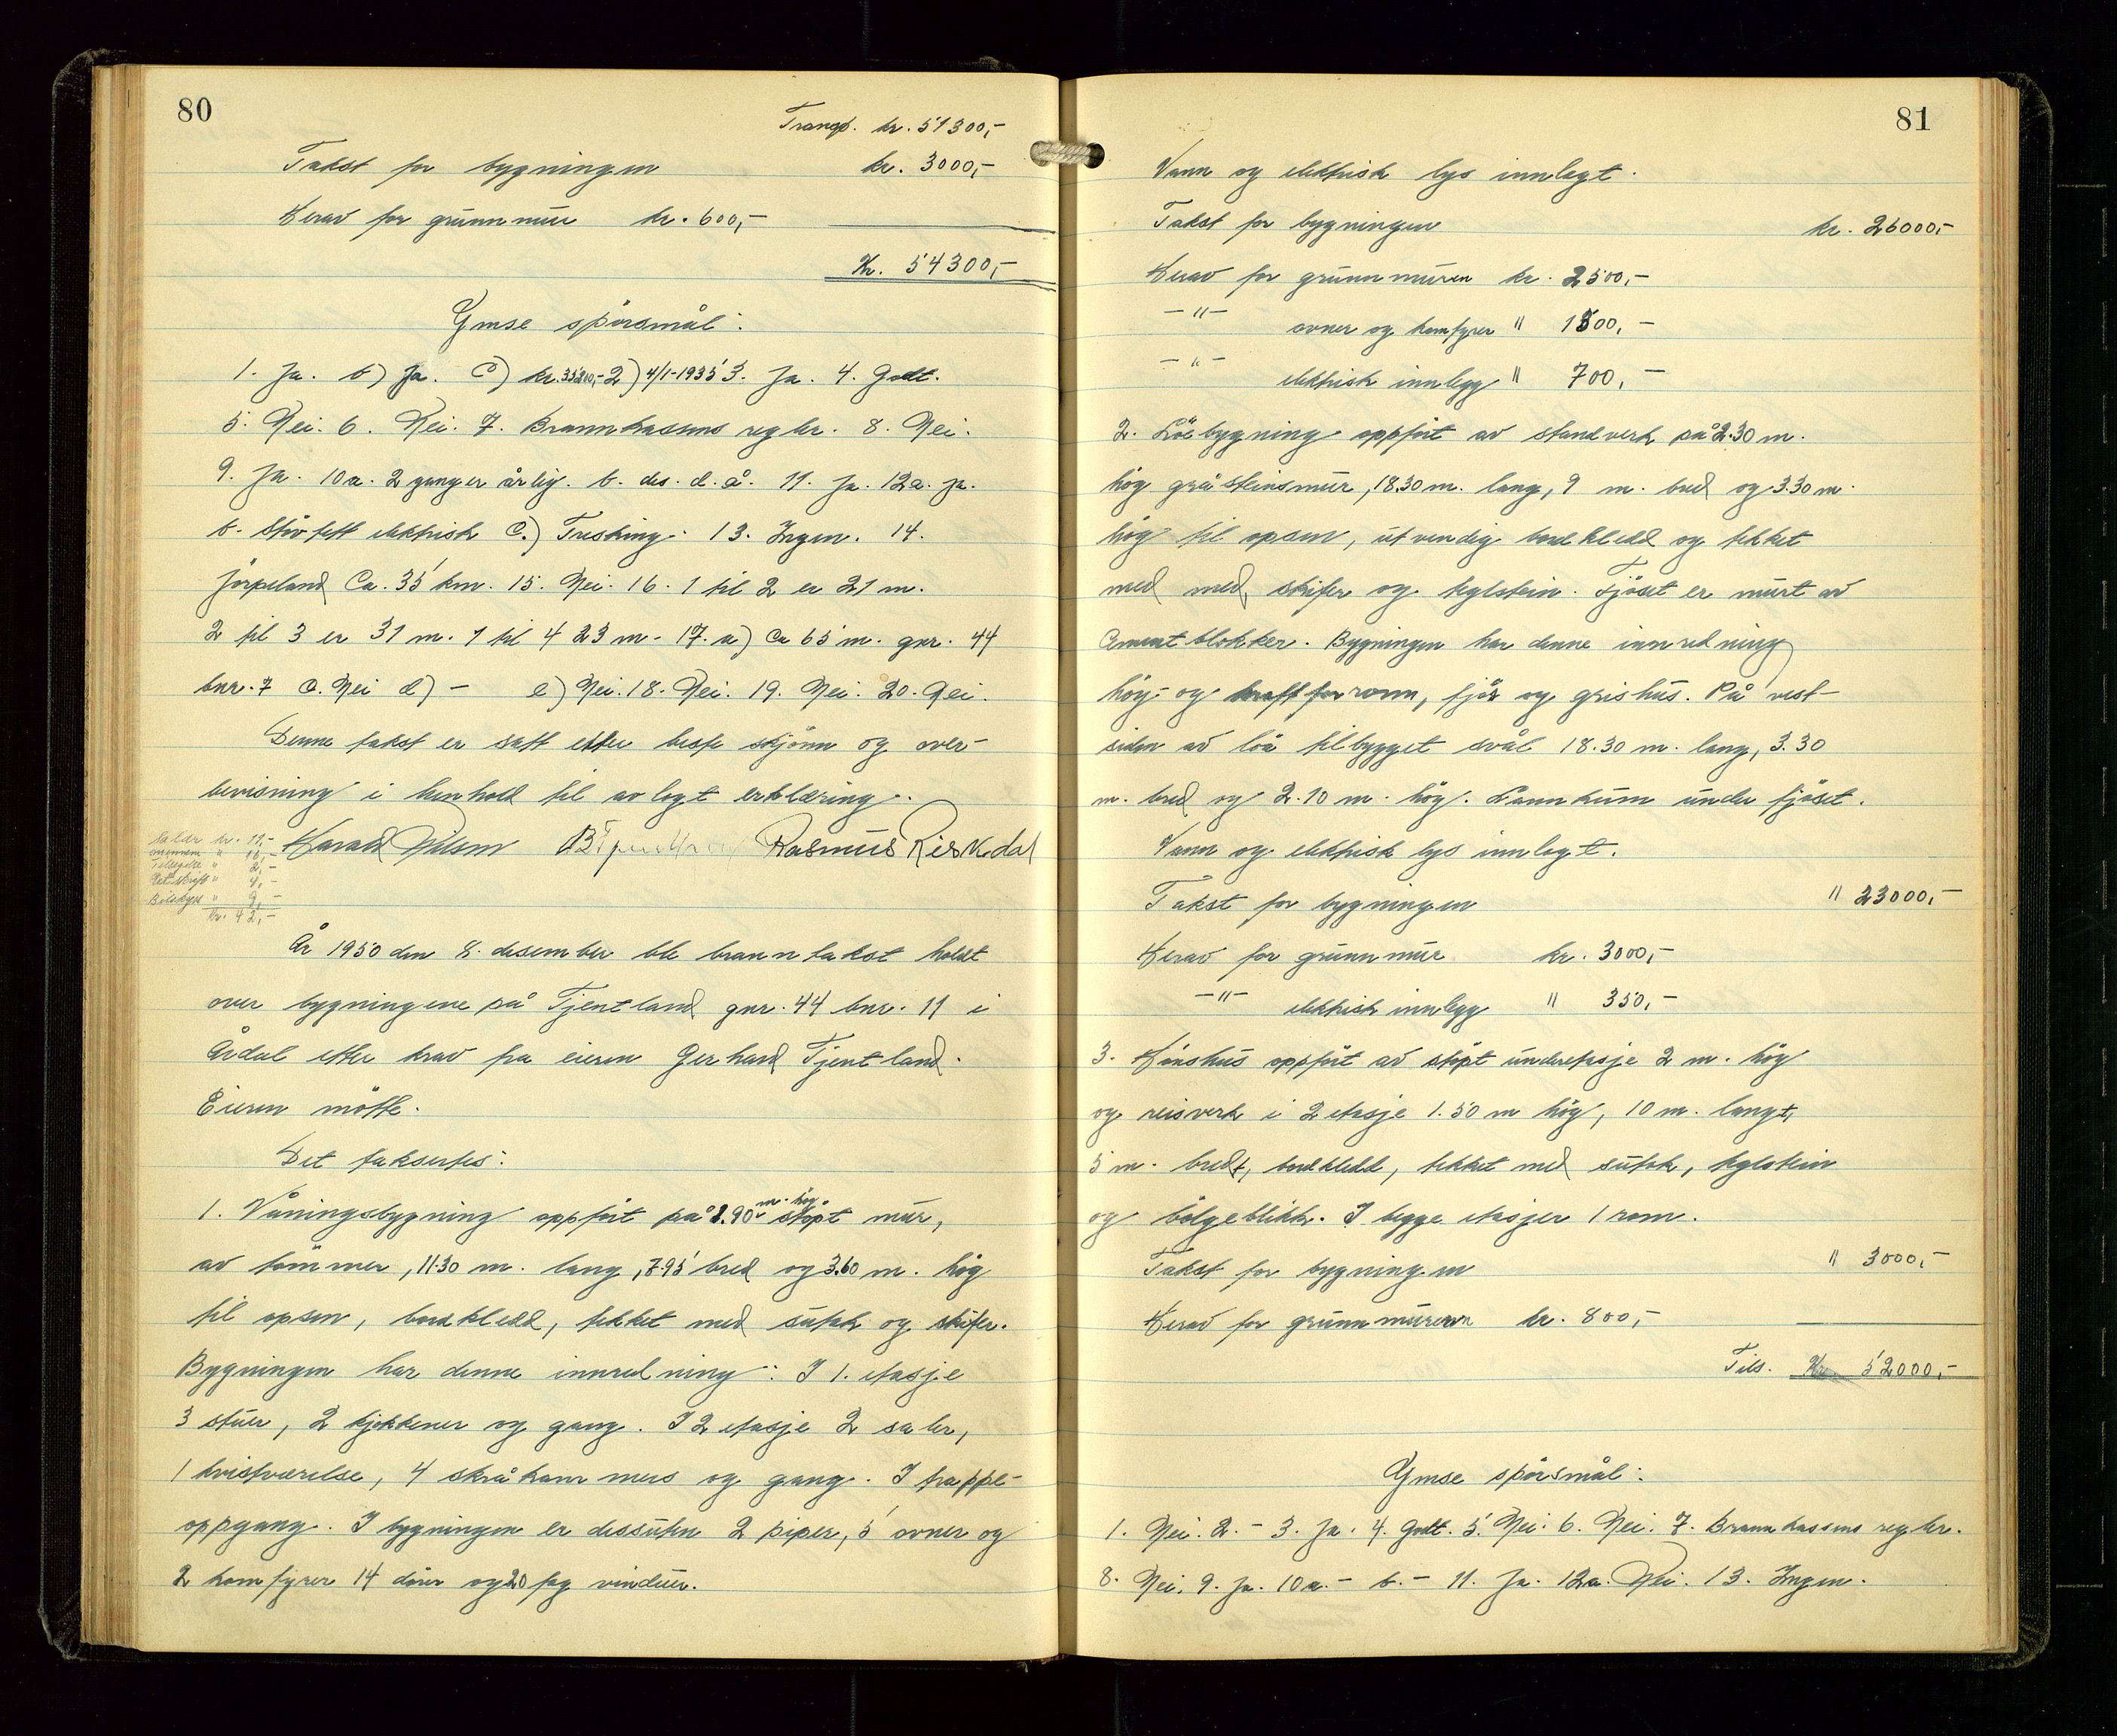 80
Transp. kr. 51300,-
Takst for bygningen kr. 3000,-
Herav for grunnmur kr. 600,-
Kr. 54300,-
Ymse spörsmål:
1. Ja. b) Ja. c) kr. 35200,- 2) 4/1-1935 3. Ja. 4. Godt.
5. Nei. 6. Nei. 7. Brannkassens regler. 8. Nei.
9. Ja. 10a. 2 ganger årlig. b. des. d.å. 11. Ja. 12a. Ja.
b. Støvtett elektrisk C.) Tresking. 13. Ingen. 14.
Jörpeland Ca. 35 km. 15. Nei. 16. 1 til 2 er 21 m.
2 til 3 er 31 m. 1 til 4 23 m. 17. a) Ca 65 m. gnr. 44
bnr. 7 c. Nei d) - e) Nei. 18. Nei. 19. Nei. 20. Nei.
Denne takst er satt etter beste skjönn og over-
bevisning i henhold til avlagt erklæring.
Harald Nilsen Rasmus Riskedal
kr. 12,-
" 2,-
" 4,-
Bilskyss " 9,-
Kr. 42,-
År 1950 den 8. desember ble branntakst holdt
over bygningene på Tjentland gnr. 44 bnr. 11 i
Årdal etter krav fra eieren Gerhard Tjentland.
Eieren mötte.
Det takseres:
1. Våningsbygning oppfört på 1.90 m. hög stöpt mur,
av tömmer, 11.30 m. lang, 7.95 bred og 3.60 m. hög
til opsen, bordkledd, tekket med sutak og skifer.
Bygningen har denne innredning: I 1. etasje
3 stuer, 2 kjökkener og gang. I 2 etasje 2 saler,
1 kvistværelse, 4 skråkammers og gang. I trappe-
oppgang. I bygningen er dessuten 2 piper, 5 ovner og
2 komfyrer 14 dörer og 20 fag vinduer.
81
Vann og elektrisk lys innlagt.
Takst for bygningen kr. 26000,-
Herav for grunnmuren kr. 2500,-
-"- ovner og komfyrer " 1500,-
-"- elektrisk innlegg " 700,-
2. Löebygning oppfört av standverk på 2.30 m.
hög gråsteinsmur, 18.30 m. lang, 9 m. bred og 3.30 m.
hög til opsen, utvendig bordkledd og tekket
med med, skifer og teglstein. Fjöset er murt av
Cementblokker. Bygningen har denne innredning
höy- og kraftforrom, fjös og grishus. På vest-
siden av löa tilbygget svål 18.30 m. lang, 3.30
m. bred og 2.10 m. hög. Lannkum under fjöset.
Vann og elektrisk lys innlagt.
Takst for bygningen " 23000,-
Herav for grunnmur kr. 3000,-
-"- elektrisk innlegg " 350,-
3. Hönshus oppfört av stöpt underetasje 2 m. hög
og reisverk i 2 etasje 1.50 m hög, 10 m. langt,
5 m. bredt, bordkledd, tekket med sutak, teglstein
og bölgeblikk. I begge etasjer 1 rom.
Takst for bygningen " 3000,-
Herav for grunnmuren kr. 800,-
Tils. Kr. 52000,-
Ymse spörsmål:
1. Nei. 2. - 3. Ja. 4. Godt. 5. Nei. 6. Nei. 7. Brannkassens regler.
8. Nei. 9. Ja. 10a. - b. - 11. Ja. 12a. Nei. 13. Ingen.